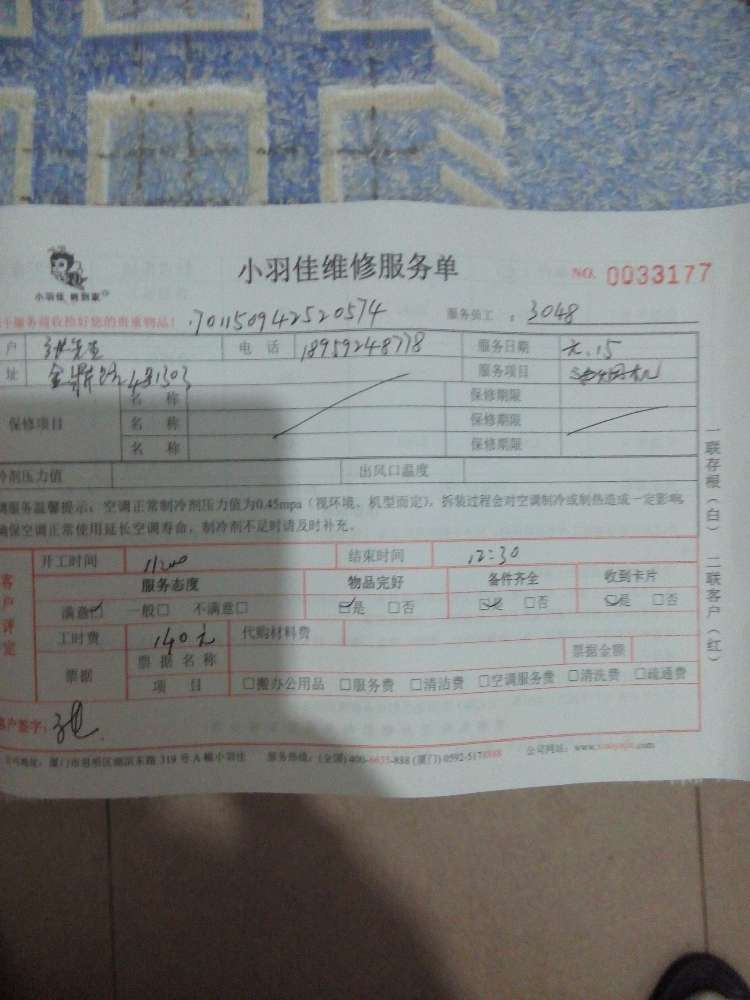 小羽佳维修服务单
NO. 0033177
小羽佳 帮到家
服务前请收捡好您的贵重物品! 701150942520574 服务员工 : 3048
户 张先生 电 话 18959248778 服务日期 元.15
址 金 路 服务项目
保修项目 名 称 保修期限
名 称 保修期限
名 称 保修期限
冷剂压力值 出风口温度
调服务温馨提示:空调正常制冷剂压力值为0.45mpa(视环境、机型而定),拆装过程会对空调制冷或制热造成一定影响,
确保空调正常使用延长空调寿命,制冷剂不足时请及时补充。
客户评定
开工时间 11:00 结束时间 12:30
服务态度 物品完好 备件齐全 收到卡片
满意☑ 一般□ 不满意□ ☑是 □否 ☑是 □否 ☑是 □否
工时费 140元 代购材料费
票据 票据名称 票据金额
项 目 □搬办公用品 □服务费 □清洁费 □空调服务费 □清洗费 □疏通费
客户签字: 张
公司地址:厦门市思明区湖滨东路 319 号 A 幢小羽佳 服务热线:(全国) 400-6633-888 (厦门) 0592-5178888 公司网站:www.xiaoyujia.com
一联存根(白) 二联客户(红)